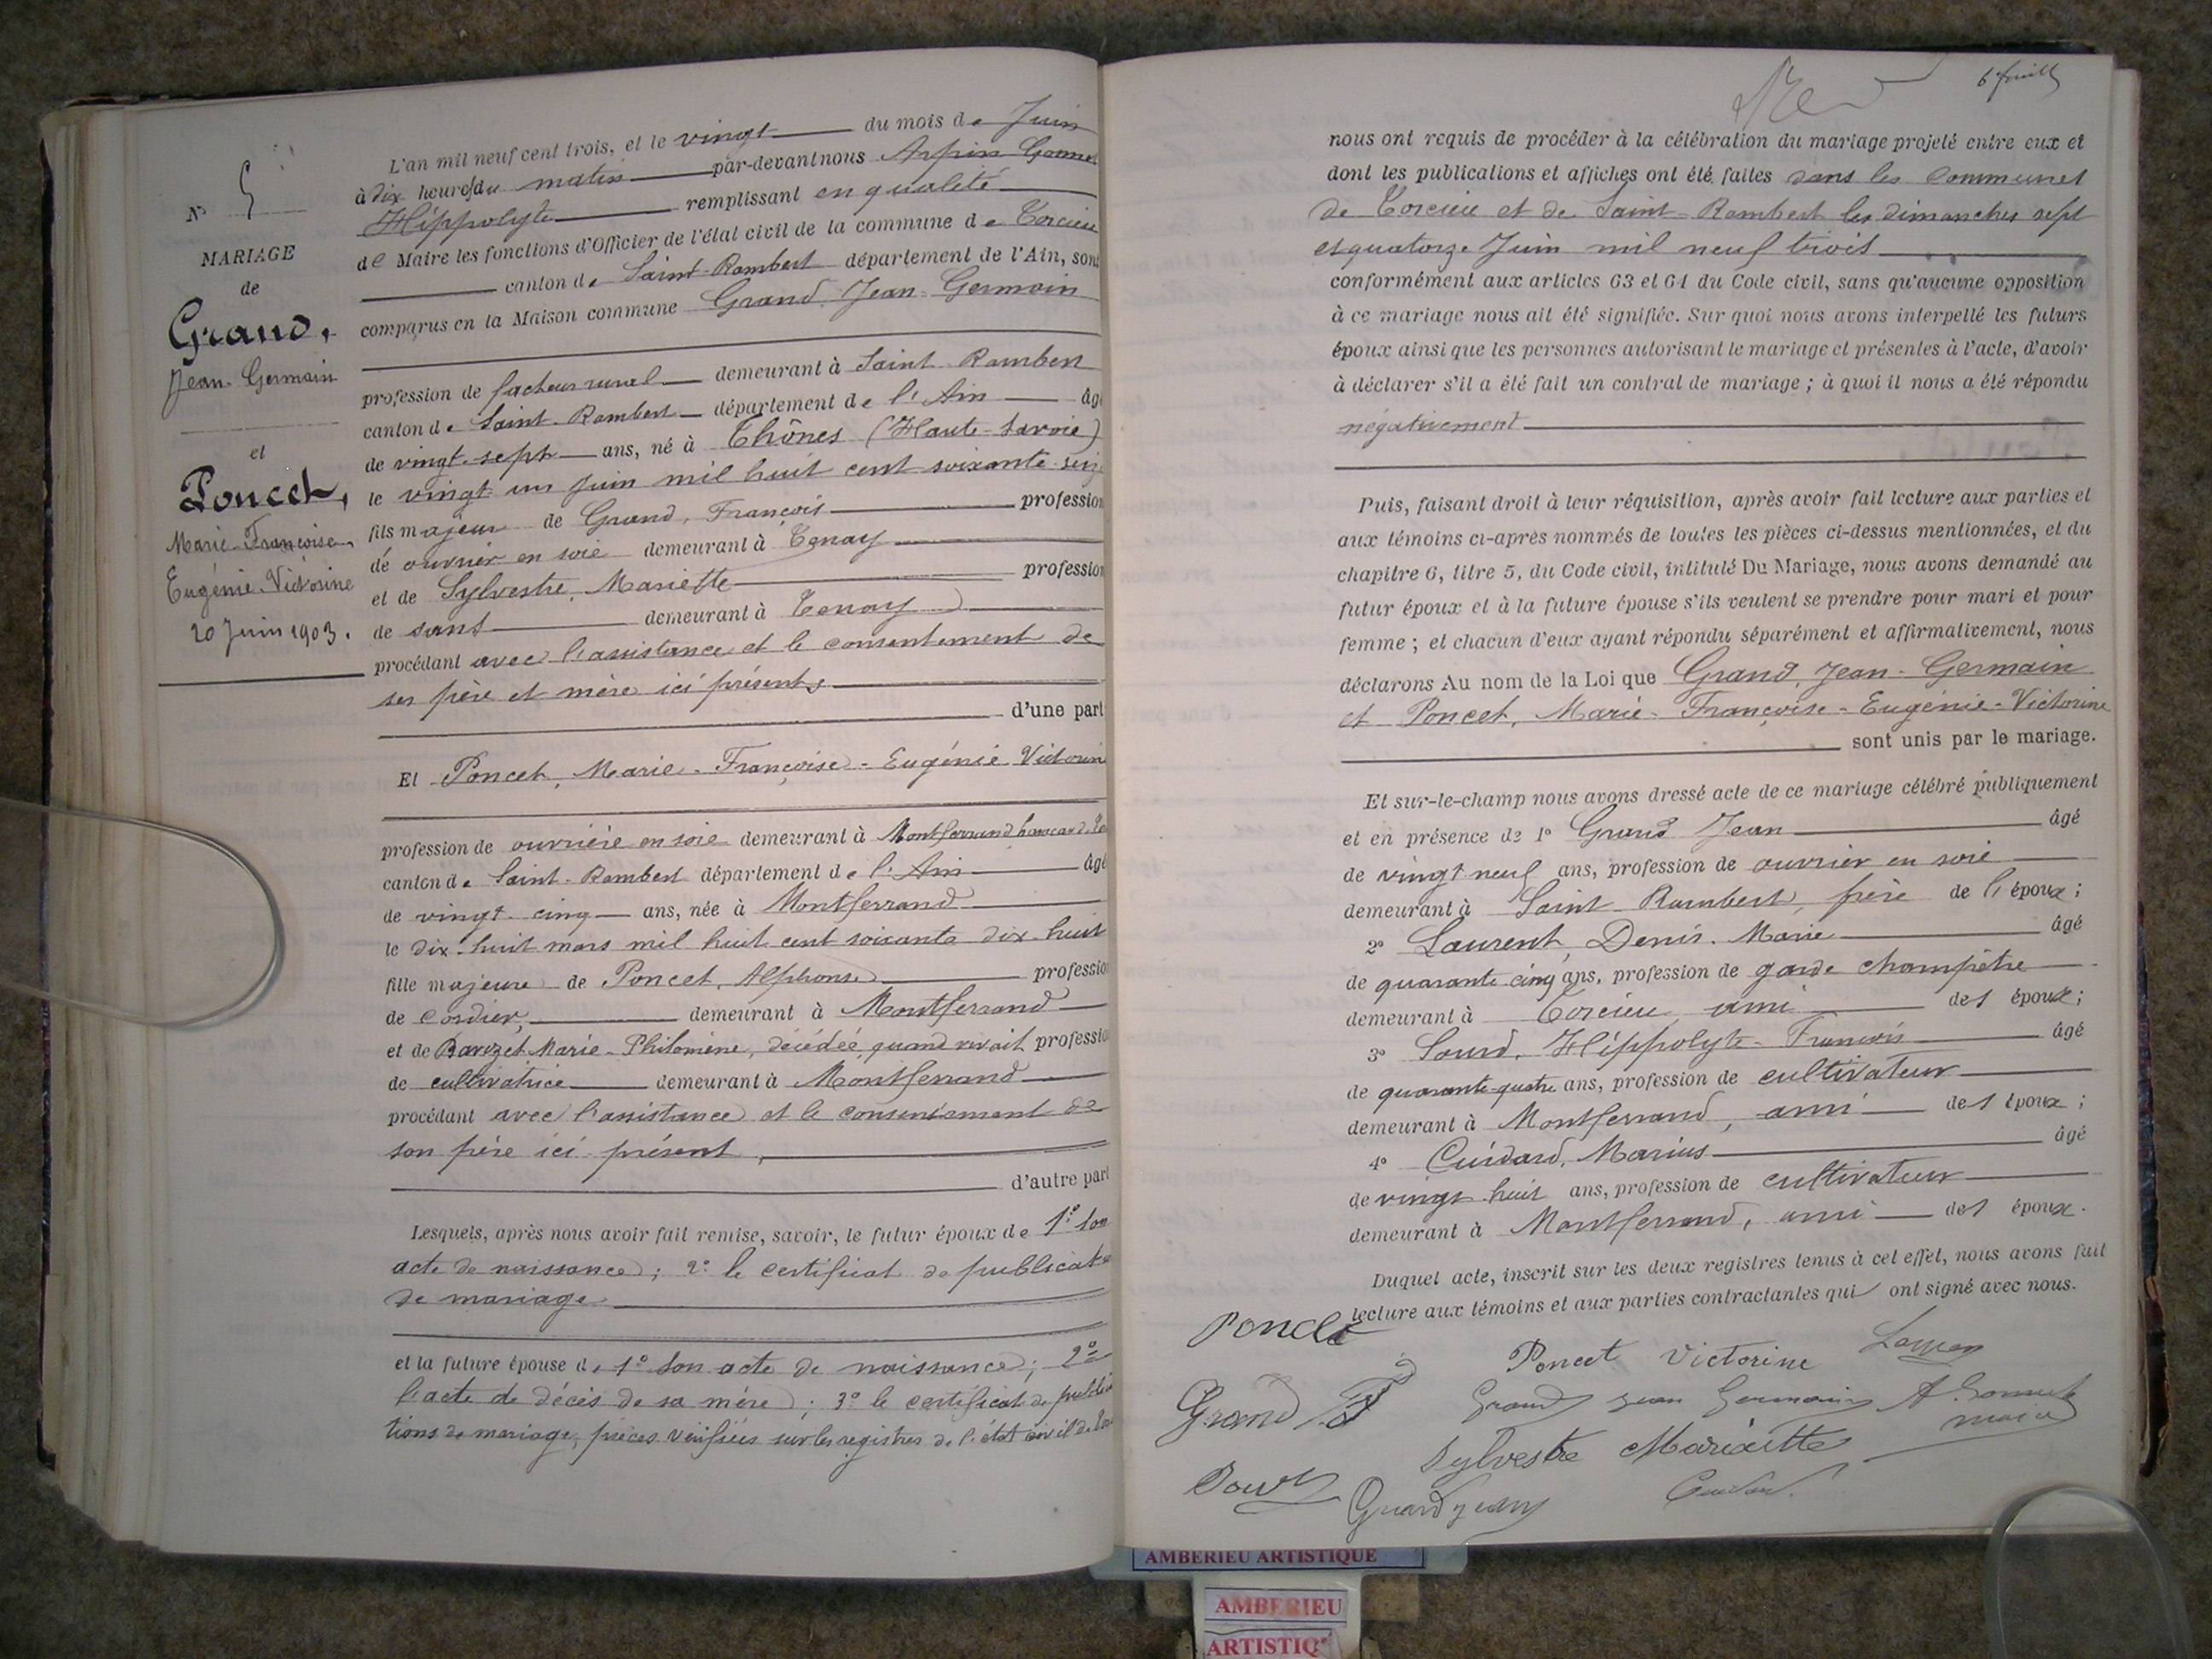 N° 5
MARIAGE
de
Grand,
Jean-Germain
et
Poncet,
Marie-Françoise-
Eugénie-Victorine
20 Juin 1903.
L'an mil neuf cent trois, et le vingt du mois de Juin
à dix heures du matin par-devant nous Arpin Gonnet
Hippolyte remplissant en qualité
de Maire les fonctions d'Officier de l'état civil de la commune de Torcieu
canton de Saint-Rambert département de l'Ain, sont
comparus en la Maison commune Grand, Jean-Germain
profession de facteur rural demeurant à Saint-Rambert
canton de Saint-Rambert département de l'Ain âgé
de vingt-sept ans, né à Thônes (Haute-Savoie)
le vingt-un juin mil huit cent soixante-seize
fils majeur de Grand, François profession
de ouvrier en soie demeurant à Tenay
et de Sylvestre, Mariette profession
de sans demeurant à Tenay
procédant avec l'assistance et le consentement de
ses père et mère ici présents
d'une part
Et Poncet, Marie-Françoise-Eugénie-Victorine
profession de ouvrière en soie demeurant à Montferrand
canton de Saint-Rambert département de l'Ain âgé
de vingt-cinq ans, née à Montferrand
le dix-huit mars mil huit cent soixante dix-huit
fille majeure de Poncet, Alphonse profession
de cordier, demeurant à Montferrand
et de Marie-Philomène, décédée, quand vivait profession
de cultivatrice demeurant à Montferrand
procédant avec l'assistance et le consentement de
son père ici présent,
d'autre part
Lesquels, après nous avoir fait remise, savoir, le futur époux de 1° son
acte de naissance; 2° le certificat de publication
de mariage
et la future épouse de 1° son acte de naissance; 2°
l'acte de décès de sa mère; 3° le certificat de publica
tions de mariage, pièces vérifiées sur les registres de l'état civil de
6e feuillet
nous ont requis de procéder à la célébration du mariage projeté entre eux et
dont les publications et affiches ont été faites dans les communes
de Torcieu et de Saint-Rambert les dimanches sept
et quatorze Juin mil neuf trois
conformément aux articles 63 et 64 du Code civil, sans qu'aucune opposition
à ce mariage nous ait été signifiée. Sur quoi nous avons interpellé les futurs
époux ainsi que les personnes autorisant le mariage et présentes à l'acte, d'avoir
à déclarer s'il a été fait un contrat de mariage; à quoi il nous a été répondu
négativement
Puis, faisant droit à leur réquisition, après avoir fait lecture aux parties et
aux témoins ci-après nommés de toutes les pièces ci-dessus mentionnées, et du
chapitre 6, titre 5, du Code civil, intitulé Du Mariage, nous avons demandé au
futur époux et à la future épouse s'ils veulent se prendre pour mari et pour
femme; et chacun d'eux ayant répondu séparément et affirmativement, nous
déclarons Au nom de la Loi que Grand, Jean-Germain
et Poncet, Marie-Françoise-Eugénie-Victorine
sont unis par le mariage.
Et sur-le-champ nous avons dressé acte de ce mariage célébré publiquement
et en présence de 1° Grand Jean âgé
de vingt neuf ans, profession de ouvrier en soie
demeurant à Saint-Rambert, frère de l'époux;
2° Laurent, Denis-Marie âgé
de quarante-cinq ans, profession de garde champêtre
demeurant à Torcieu, ami des époux;
3° Sourd, Hippolyte-François âgé
de quarante-quatre ans, profession de cultivateur
demeurant à Montferrand, ami des époux;
4° Cuidard, Marius âgé
de vingt-huit ans, profession de cultivateur
demeurant à Montferrand, ami des époux.
Duquel acte, inscrit sur les deux registres tenus à cet effet, nous avons fait
lecture aux témoins et aux parties contractantes qui ont signé avec nous.
Poncet
Poncet Victorine
Grand F
Grand jean Germain
A. Gonnet
maire
Sylvestre Mariette
Grand jean
AMBERIEU ARTISTIQUE
AMBERIEU
ARTISTIQ